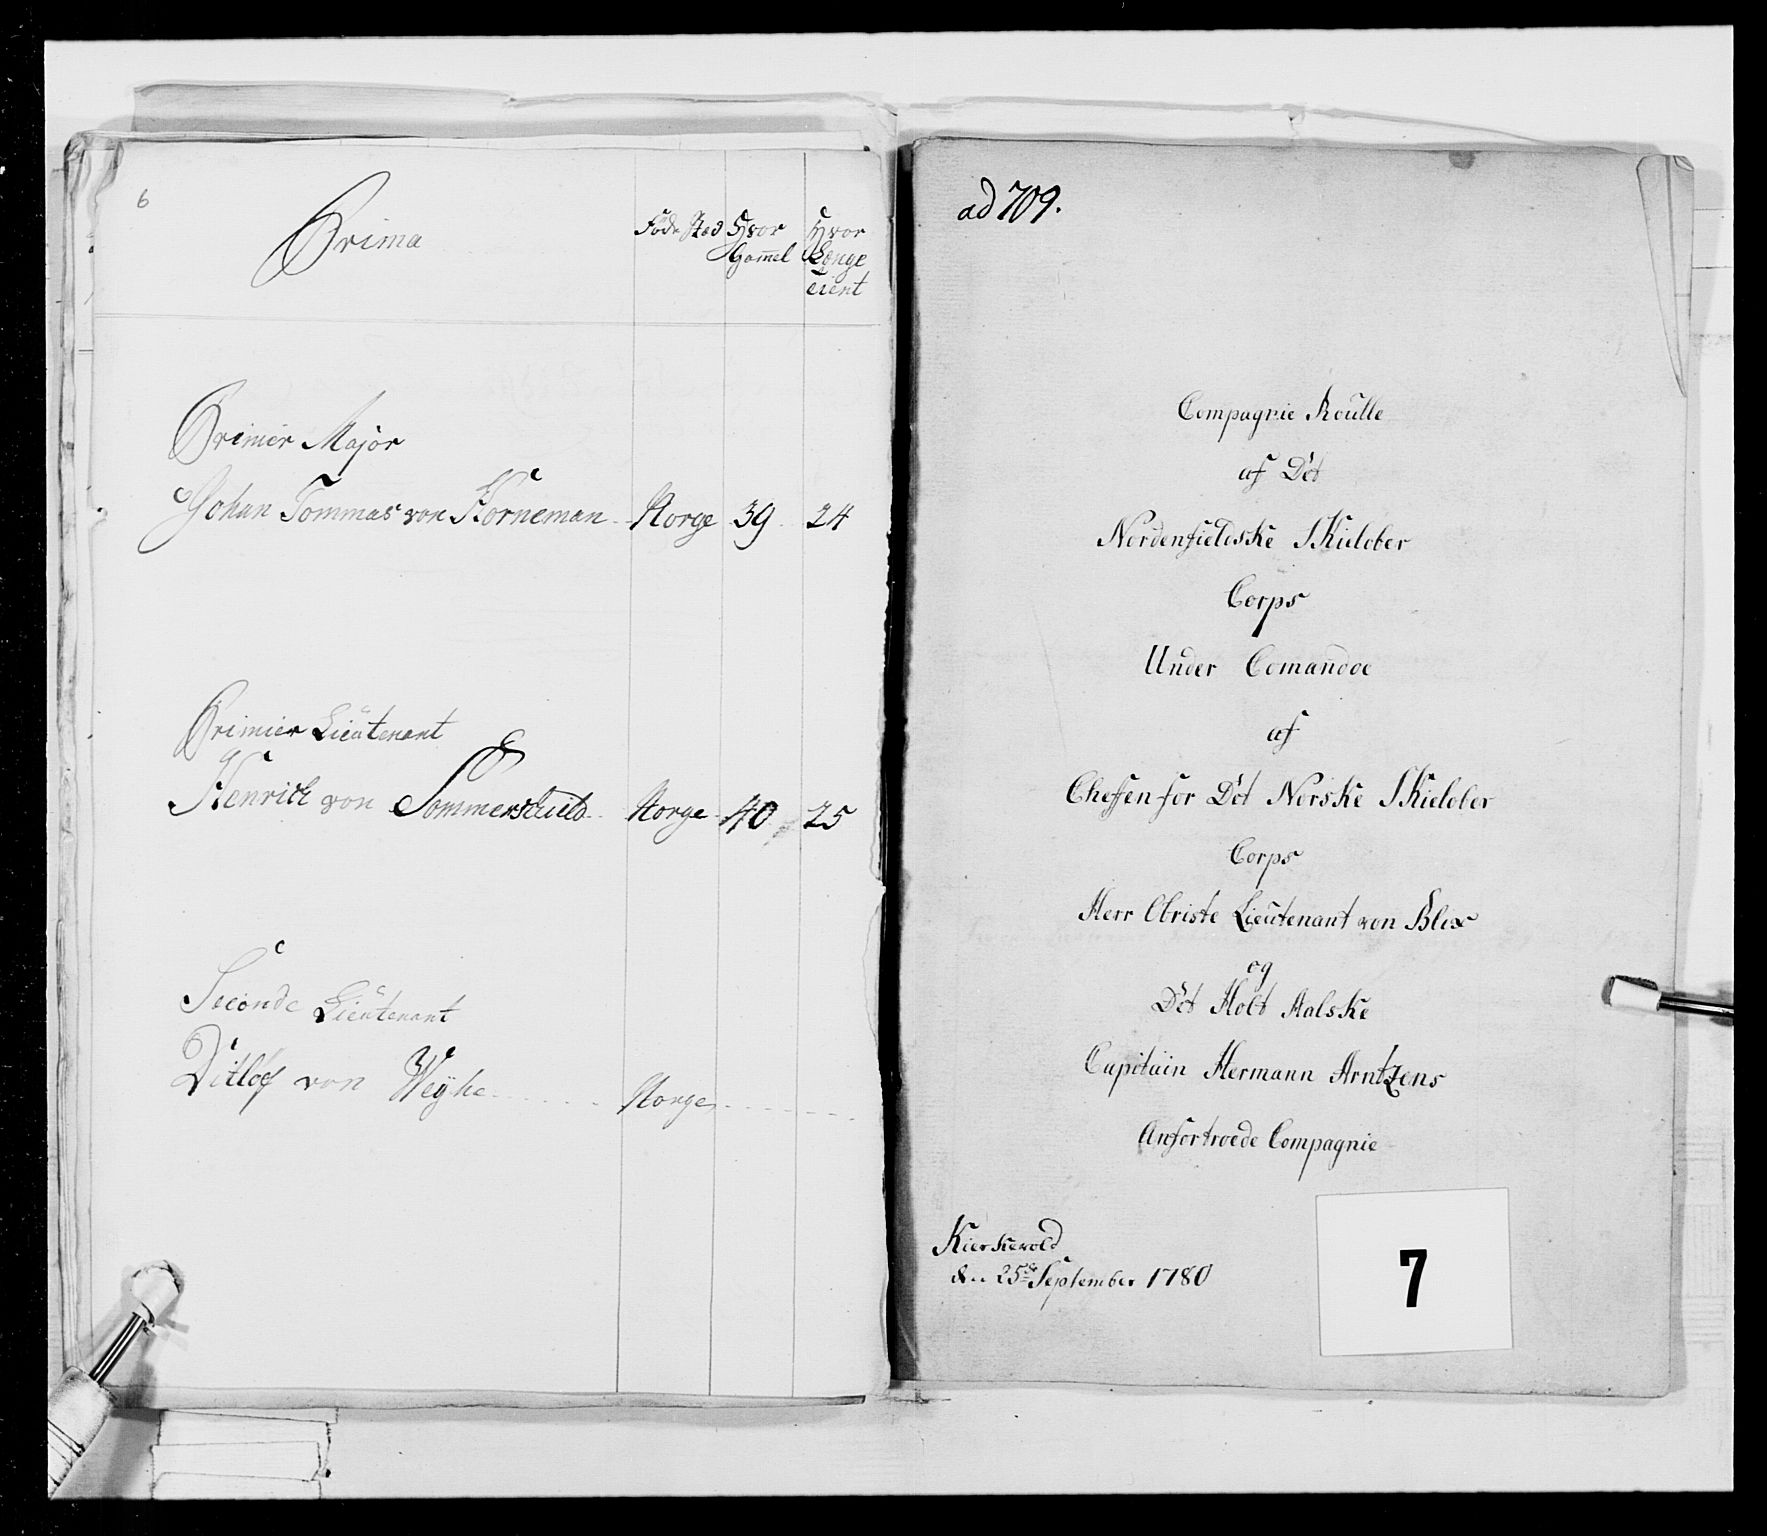 6
Prima
Föde Sted
Hvor Gammel
Hvor Længe tient
Primier Major
Johan Tommas von Korneman Norge 39 24
Primier Lieutenant
Henrich von Sommerschield Norge 40 25
Seconde Lieutenant
Ditlof von Weyhe Norge
ad 709.
Compagnie Roulle
af Det
Nordenfieldske Skielober
Corps
Under Comandoe
af
Cheffen for Det Norske Skielober
Corps
Herr Obriste Lieutenant von Blix
og
Det Holt Aalske
Capitain Hermann Arntzens
Anfortroede Compagnie
Kierkevold
den 25de September 1780
7